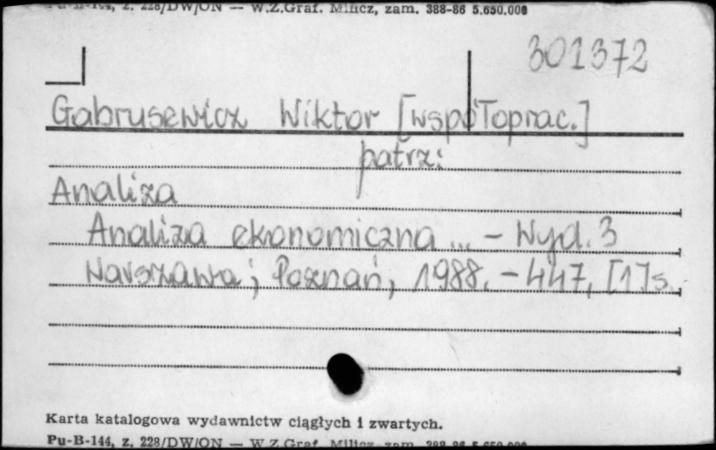 Pu-B-144, z. 228/DW/ON — W.Z.Graf. Milicz, zam. 388-86 5.650.000
301372
Gabrusewicz Wiktor [współoprac.]
patrz:
Analiza
Analiza ekonomiczna ... - Wyd. 3
Warszawa; Poznań, 1988. - 447, [1] s.
Karta katalogowa wydawnictw ciągłych i zwartych.
Pu-B-144, z. 228/DW/ON — W.Z.Graf. Milicz, zam. 388-86 5.650.000